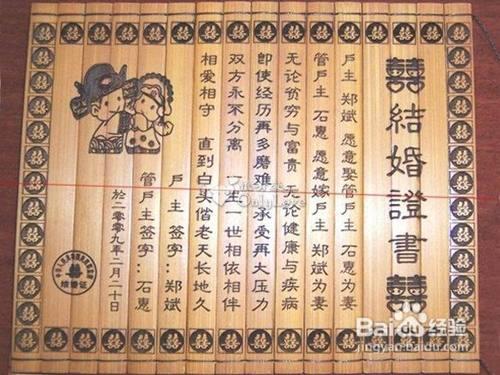 囍結婚證書囍
户主 郑斌 愿意娶管户主 石惠 为妻
管户主 石惠 愿意嫁户主 郑斌为妻
无论贫穷与富贵 无论健康与疾病
即使经历再多磨难 承受再大压力
双方永不分离 一生一世相依相伴
相爱相守 直到白头偕老天长地久
户主 签字：郑斌
管户主签字：石惠
於二零零九年二月二十日
结婚证
Baidu经验
jingyan.baidu.com